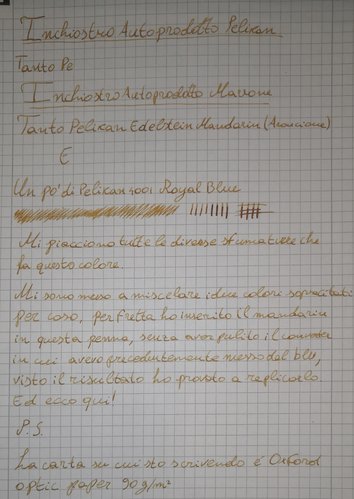 Inchiostro Autoprodotto Pelikan
Tanto Pe
Inchiostro Autoprodotto Marrone
Tanto Pelikan Edelstein Mandarin (Arancione)
E
Un pò di Pelikan 4001 Royal Blue
Mi piacciono tutte le diverse sfumature che
fa questo colore.
Mi sono messo a miscelare i due colori sopracitati
per caso, per fretta ho inserito il mandarin
in questa penna, senza aver pulito il converter
in cui avevo precedentemente messo del blu,
visto il risultato ho provato a replicarlo.
Ed ecco qui!
P.S.
La carta su cui sto scrivendo é Oxford
optic paper 90g/m²